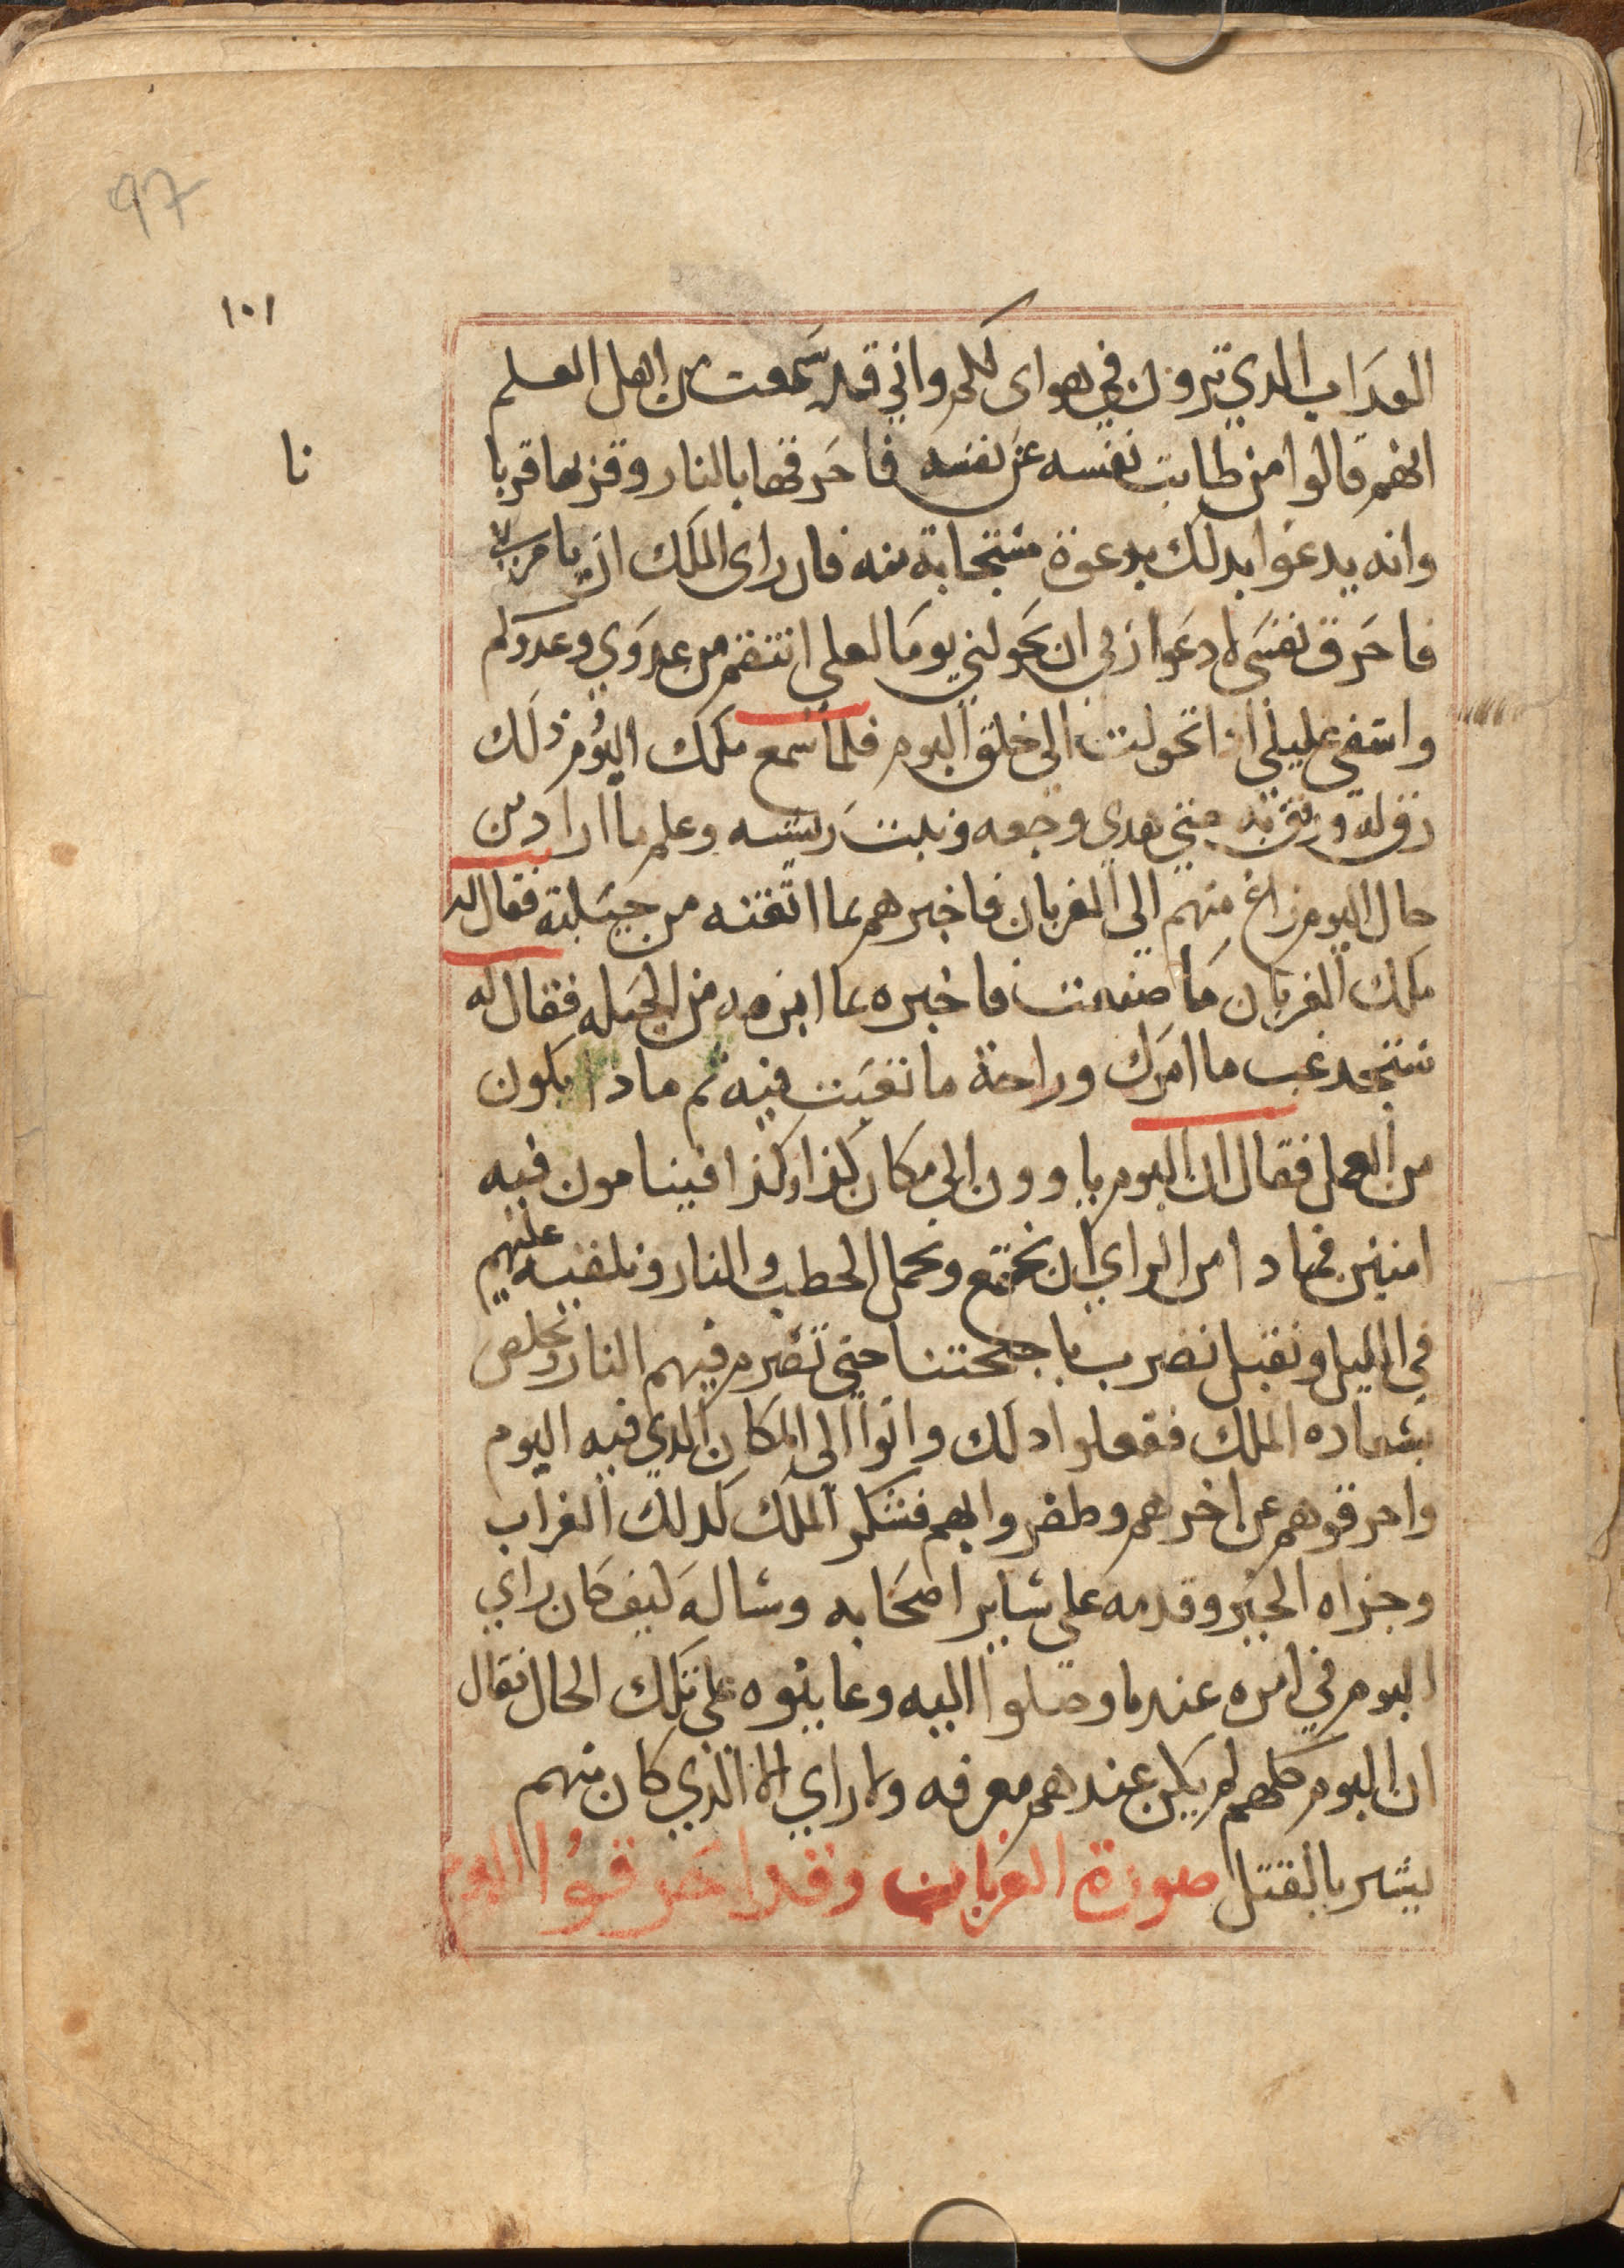 97
١٠١
نا
العداب الدي ترون في هواى لكم واني قد سمعت من اهل العلم
انهم قالوا من طابت نفسه عن نفسه فاحرقها بالنار وقربها قربا
وانه يدعوا بدلك بدعوة مستجابة منه فان راى الملك ان يامر بي
فاحرق نفسى لادعوا ربي ان يحولني بوما لعلي انتقم من عدوي وعدوكم
واشفي غليلي ادا تحولت الى خلق البوم فلما سمع ملك البوم ذلك
رق له ورفق به حتى هدى وجعه ونبت ريشه وعلم ما اراد من
حال البوم زاغ منهم الى الغربان فاخبرهم بما اتقنه من حيلته فقال له
ملك الغربان ما صنعت فاخبره بما ابرمه من الحيله فقال له
ستجد غب ما امرك وراحة ما تعبت فيه ثم مادا يكون
من العمل فقال ان البوم ياوون الى مكان كذا وكذا فينامون فيه
امنين فمادا من الراي ان نجتمع ونحمل الحطب والنار ونلقيه عليهم
في الليل ونقبل نضرب باجنحتنا حتى تضرم فيهم النار ونخلص
بشهاده الملك ففعلوا دلك واتوا الى المكان الدي فيه البوم
واحرقوهم عن اخرهم وظفروا بهم فشكر الملك لدلك الغراب
وجزاه الخير وقدمه على ساير اصحابه وساله كيف كان راي
البوم في امره عندما وصلوا اليه وعاينوه على تلك الحال فقال
ان البوم كلهم لم يكن عندهم معرفه ولا راي الا الذي كان منهم
يشير بالقتل صورة الغربان وقد احرقوا البوم